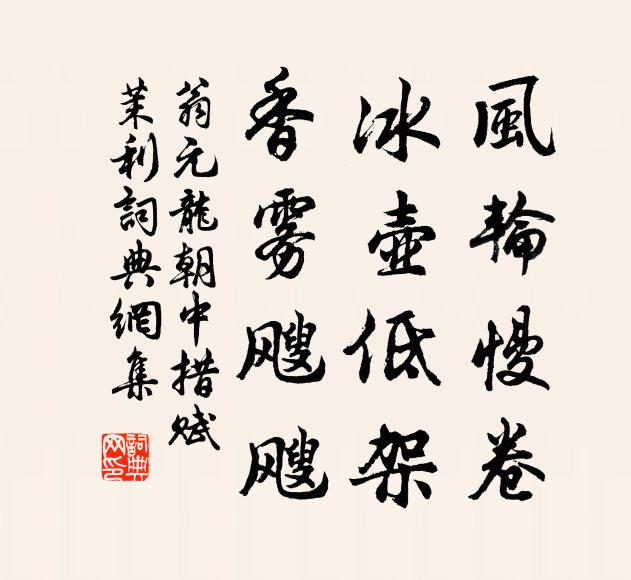 風輪慢卷
冰壺低架
香雾飕飕
翁元龍朝中措賦
茉利詞典網集
詞典網印